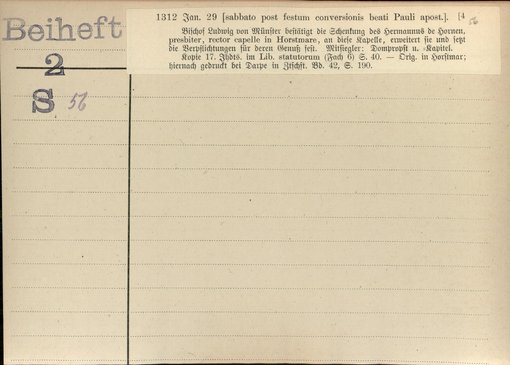 Beiheft
2
S 56
1312 Jan. 29 [sabbato post festum conversionis beati Pauli apost.]. [4
56
Bischof Ludwig von Münster bestätigt die Schenkung des Hermannus de Hornen,
presbiter, rector capelle in Horstmare, an diese Kapelle, erweitert sie und setzt
die Verpflichtungen für deren Genuß fest. Mitsiegler: Dompropst u. -Kapitel.
Kopie 17. Jhdts. im Lib. statutorum (Fach 6) S. 40. — Orig. in Horstmar;
hiernach gedruckt bei Darpe in Ztschft. Bd. 42, S. 190.